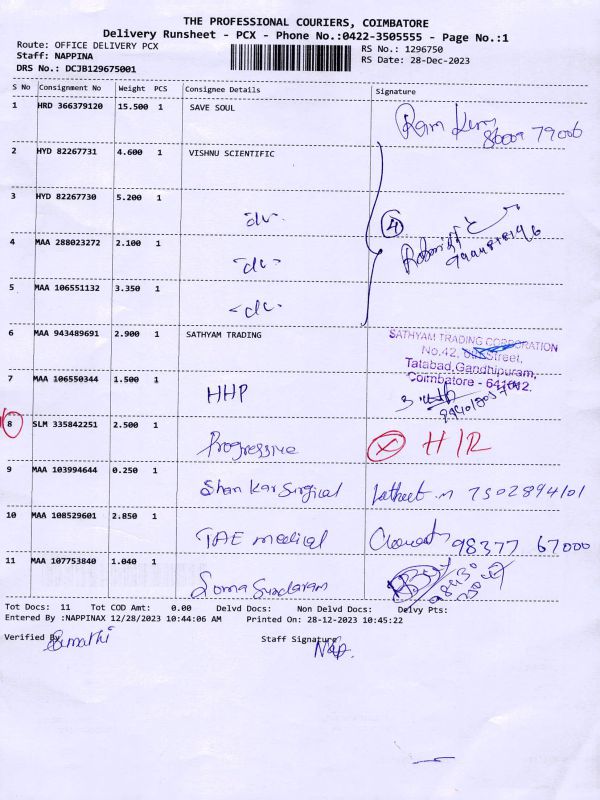 THE PROFESSIONAL COURIERS, COIMBATORE
Delivery Runsheet - PCX - Phone No.:0422-3505555 - Page No.:1
Route: OFFICE DELIVERY PCX RS No.: 1296750
Staff: NAPPINA RS Date: 28-Dec-2023
DRS No.: DCJB129675001
S No Consignment No Weight PCS Consignee Details Signature
1 HRD 366379120 15.500 1 SAVE SOUL
2 HYD 82267731 4.600 1 VISHNU SCIENTIFIC
3 HYD 82267730 5.200 1 -do-
4
4 MAA 288023272 2.100 1 -do-
5 MAA 106551132 3.350 1 -do-
6 MAA 943489691 2.900 1 SATHYAM TRADING
SATHYAM TRADING CORPORATION
No.42, 6th Street,
Tatabad,Gandhipuram,
Coimbatore - 641012.
7 MAA 106550344 1.500 1 HHP
8 SLM 335842251 2.500 1 Progressive X H/R
9 MAA 103994644 0.250 1 Shankar Surgical 7502894101
10 MAA 108529601 2.850 1 TAE medical 98377 67000
11 MAA 107753840 1.040 1 Soma Sundaram
Tot Docs: 11 Tot COD Amt: 0.00 Delvd Docs: Non Delvd Docs: Delvy Pts:
Entered By :NAPPINAX 12/28/2023 10:44:06 AM Printed On: 28-12-2023 10:45:22
Verified By Staff Signature
Sumathi Nap